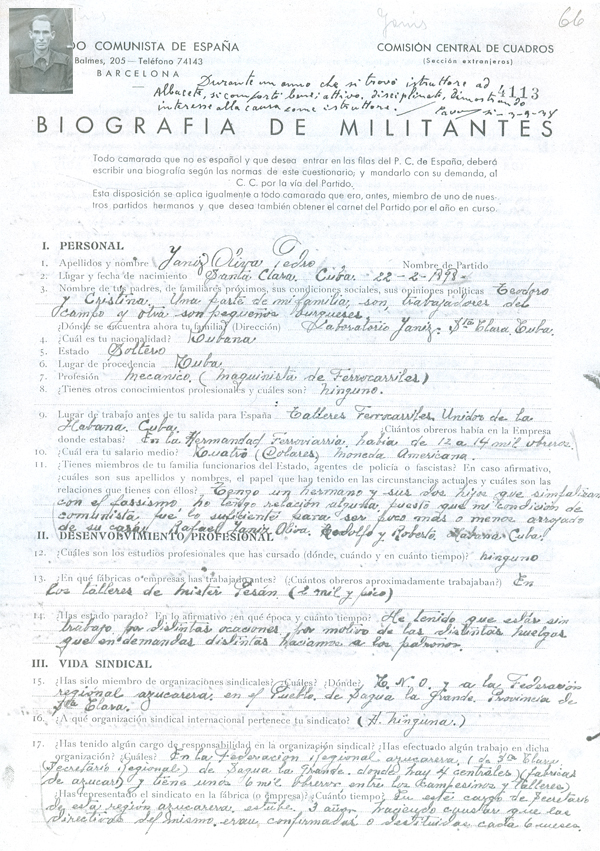 Yanis
66
DO COMUNISTA DE ESPAÑA
Balmes, 205 — Teléfono 74143
BARCELONA
COMISIÓN CENTRAL DE CUADROS
(Sección extranjeros)
4113
Durante un anno che si trovò istruttore ad
Albacete, si comportò bene: attivo, disciplinato, dimostrando
interesse alla causa come istruttore.
BIOGRAFIA DE MILITANTES
Todo camarada que no es español y que desea entrar en las filas del P. C. de España, deberá
escribir una biografía según las normas de este cuestionario, y mandarla con su demanda, al
C. C. por la vía del Partido.
Esta disposición se aplica igualmente a todo camarada que era, antes, miembro de uno de nues-
tros partidos hermanos y que desea también obtener el carnet del Partido por el año en curso.
I. PERSONAL
1. Apellidos y nombre Yaniz Oliva Pedro Nombre de Partido
2. Llugar y fecha de nacimiento Santa Clara, Cuba. 22-2-1898-
3. Nombre de tus padres, de familiares próximos, sus condiciones sociales, sus opiniones políticas Teodoro
y Cristina. Una parte de mi familia, son, trabajadores del
campo y otra son pequeños burgueses
¿Dónde se encuentra ahora tu familia? (Dirección) Laboratorio Yaniz - Sta Clara Cuba.
4. ¿Cuál es tu nacionalidad? Cubana
5. Estado Soltero
6. Lugar de procedencia Cuba
7. Profesión mecanico. (maquinista de Ferrocarriles)
8. ¿Tienes otros conocimientos profesionales y cuáles son? ninguno.
9. Lugar de trabajo antes de tu salida para España Talleres Ferrocarriles, Unidos de la
Habana. Cuba. ¿Cuántos obreros había en la Empresa
donde estabas? En la Hermandad Ferroviarria, habia de 12 a 14 mil obreros.
10. ¿Cuál era tu salario medio? Cuatro (Dolares) moneda Americana.
11. ¿Tienes miembros de tu familia funcionarios del Estado, agentes de policía o fascistas? En caso afirmativo,
¿cuáles son sus apellidos y nombres, el papel que han tenido en las circunstancias actuales y cuáles son las
relaciones que tienes con éllos? Tengo un hermano y sus dos hijos que simpatizan
con el fassismo, no tengo relación alguna, puesto que mi condición de
comunista fué lo suficiente para ser poco mas o menos arrojado
de su casa. Rafael Yaniz Oliva. Rodolfo y Roberto, Habana Cuba.
II. DESENVOLVIMIENTO PROFESIONAL
12. ¿Cuáles son los estudios profesionales que has cursado (dónde, cuándo y en cuánto tiempo)? ninguno
13. ¿En qué fábricas o empresas has trabajado antes? (¿Cuántos obreros aproximadamente trabajaban?) En
los talleres de mister Pesán, (2 mil y pico)
14. ¿Has estado parado? En lo afirmativo ¿en qué época y cuánto tiempo? He tenido que estar sin
trabajo por distintas ocaciones, por motivo de las distintas huelgas
que en demandas distintas haciamos a los patronos.
III. VIDA SINDICAL
15. ¿Has sido miembro de organizaciones sindicales? ¿Cuáles? ¿Dónde? C. N. O. y a la Federación
regional azucarera. en el Pueblo de Sagua la Grande. Provincia de
Sta Clara.
16. ¿A qué organización sindical internacional pertenece tu sindicato? (A ninguna.)
17. ¿Has tenido algún cargo de responsabilidad en la organización sindical? ¿Has efectuado algún trabajo en dicha
organización? ¿Cuáles? En la Federacion Regional azucarera, de Sta Clara
(Secretario Regional) de Sagua la Grande. donde hay 4 centrales (fabricas
de azucar) y tiene unos 6 mil obreros entre los Campesinos y talleres)
¿Has representado el sindicato en la fábrica (o empresa)? ¿Cuánto tiempo? En este cargo de Secretario
de esta región azucarera. estube 3 años, haciendo constar que las
directivas del mismo. eran confirmadas o destituidas cada 6 meses.